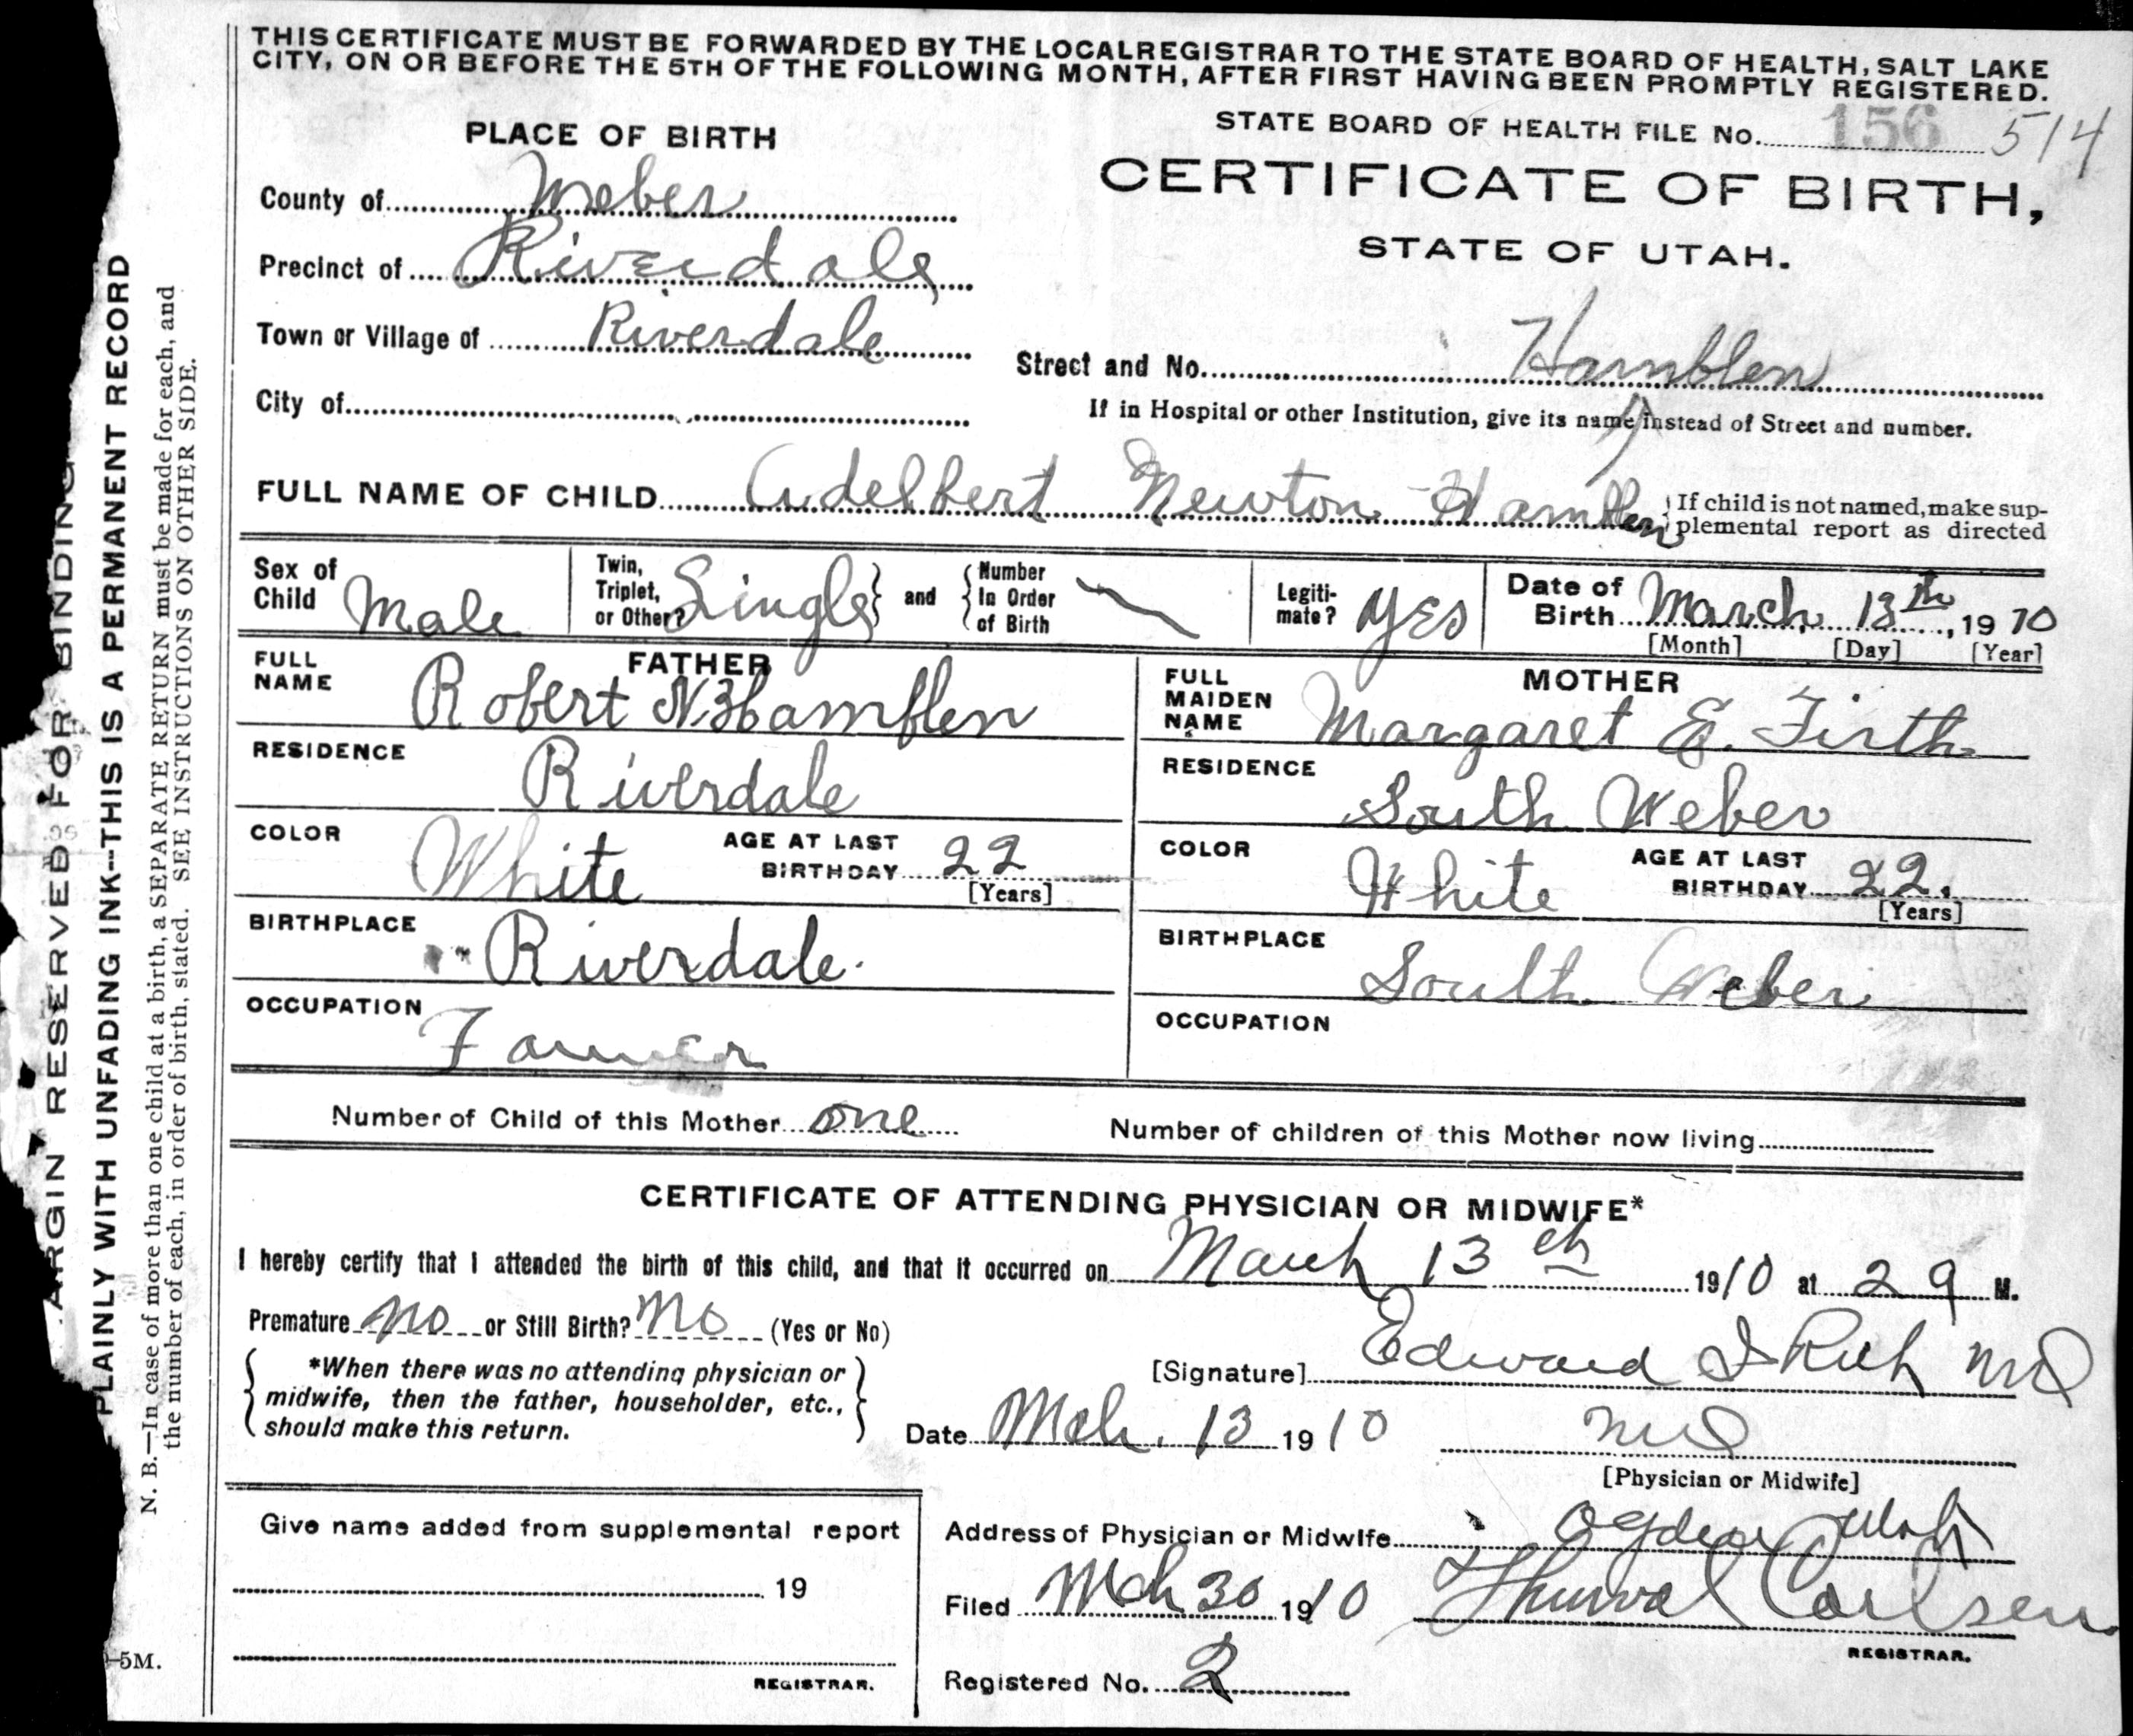 THIS CERTIFICATE MUST BE FORWARDED BY THE LOCAL REGISTRAR TO THE STATE BOARD OF HEALTH, SALT LAKE
CITY, ON OR BEFORE THE 5TH OF THE FOLLOWING MONTH, AFTER FIRST HAVING BEEN PROMPTLY REGISTERED.
STATE BOARD OF HEALTH FILE No. 156 514
PLACE OF BIRTH
CERTIFICATE OF BIRTH,
STATE OF UTAH.
County of Weber
Precinct of Riverdale
Town or Village of Riverdale
Street and No. Hamblen
City of
If in Hospital or other Institution, give its name instead of Street and number.
FULL NAME OF CHILD Adelbert Newton Hamblen
If child is not named, make sup-
plemental report as directed
Sex of Child Male
Twin, Triplet, or Other? Single and Number In Order of Birth
Legiti-mate? Yes
Date of Birth March 13th, 1910
[Month] [Day] [Year]
FATHER
FULL NAME Robert N Hamblen
RESIDENCE Riverdale
COLOR White AGE AT LAST BIRTHDAY 22
[Years]
BIRTHPLACE Riverdale.
OCCUPATION Farmer
MOTHER
FULL MAIDEN NAME Margaret E. Firth
RESIDENCE South Weber
COLOR White AGE AT LAST BIRTHDAY 22.
[Years]
BIRTHPLACE South Weber
OCCUPATION
Number of Child of this Mother one Number of children of this Mother now living
CERTIFICATE OF ATTENDING PHYSICIAN OR MIDWIFE*
I hereby certify that I attended the birth of this child, and that it occurred on March 13th 1910 at 2 a M.
Premature no or Still Birth? No (Yes or No)
*When there was no attending physician or
midwife, then the father, householder, etc.,
should make this return.
[Signature] Edward I Rich MD
Date Mch. 13 1910 MD
[Physician or Midwife]
Give name added from supplemental report
19
REGISTRAR.
Address of Physician or Midwife Ogden Utah
Filed Mch 30 1910 Thurval Carlsen
REGISTRAR.
Registered No. 2
ARGIN RESERVED FOR BINDING
PLAINLY WITH UNFADING INK--THIS IS A PERMANENT RECORD
N. B.—In case of more than one child at a birth, a SEPARATE RETURN must be made for each, and
the number of each, in order of birth, stated. SEE INSTRUCTIONS ON OTHER SIDE.
-5M.